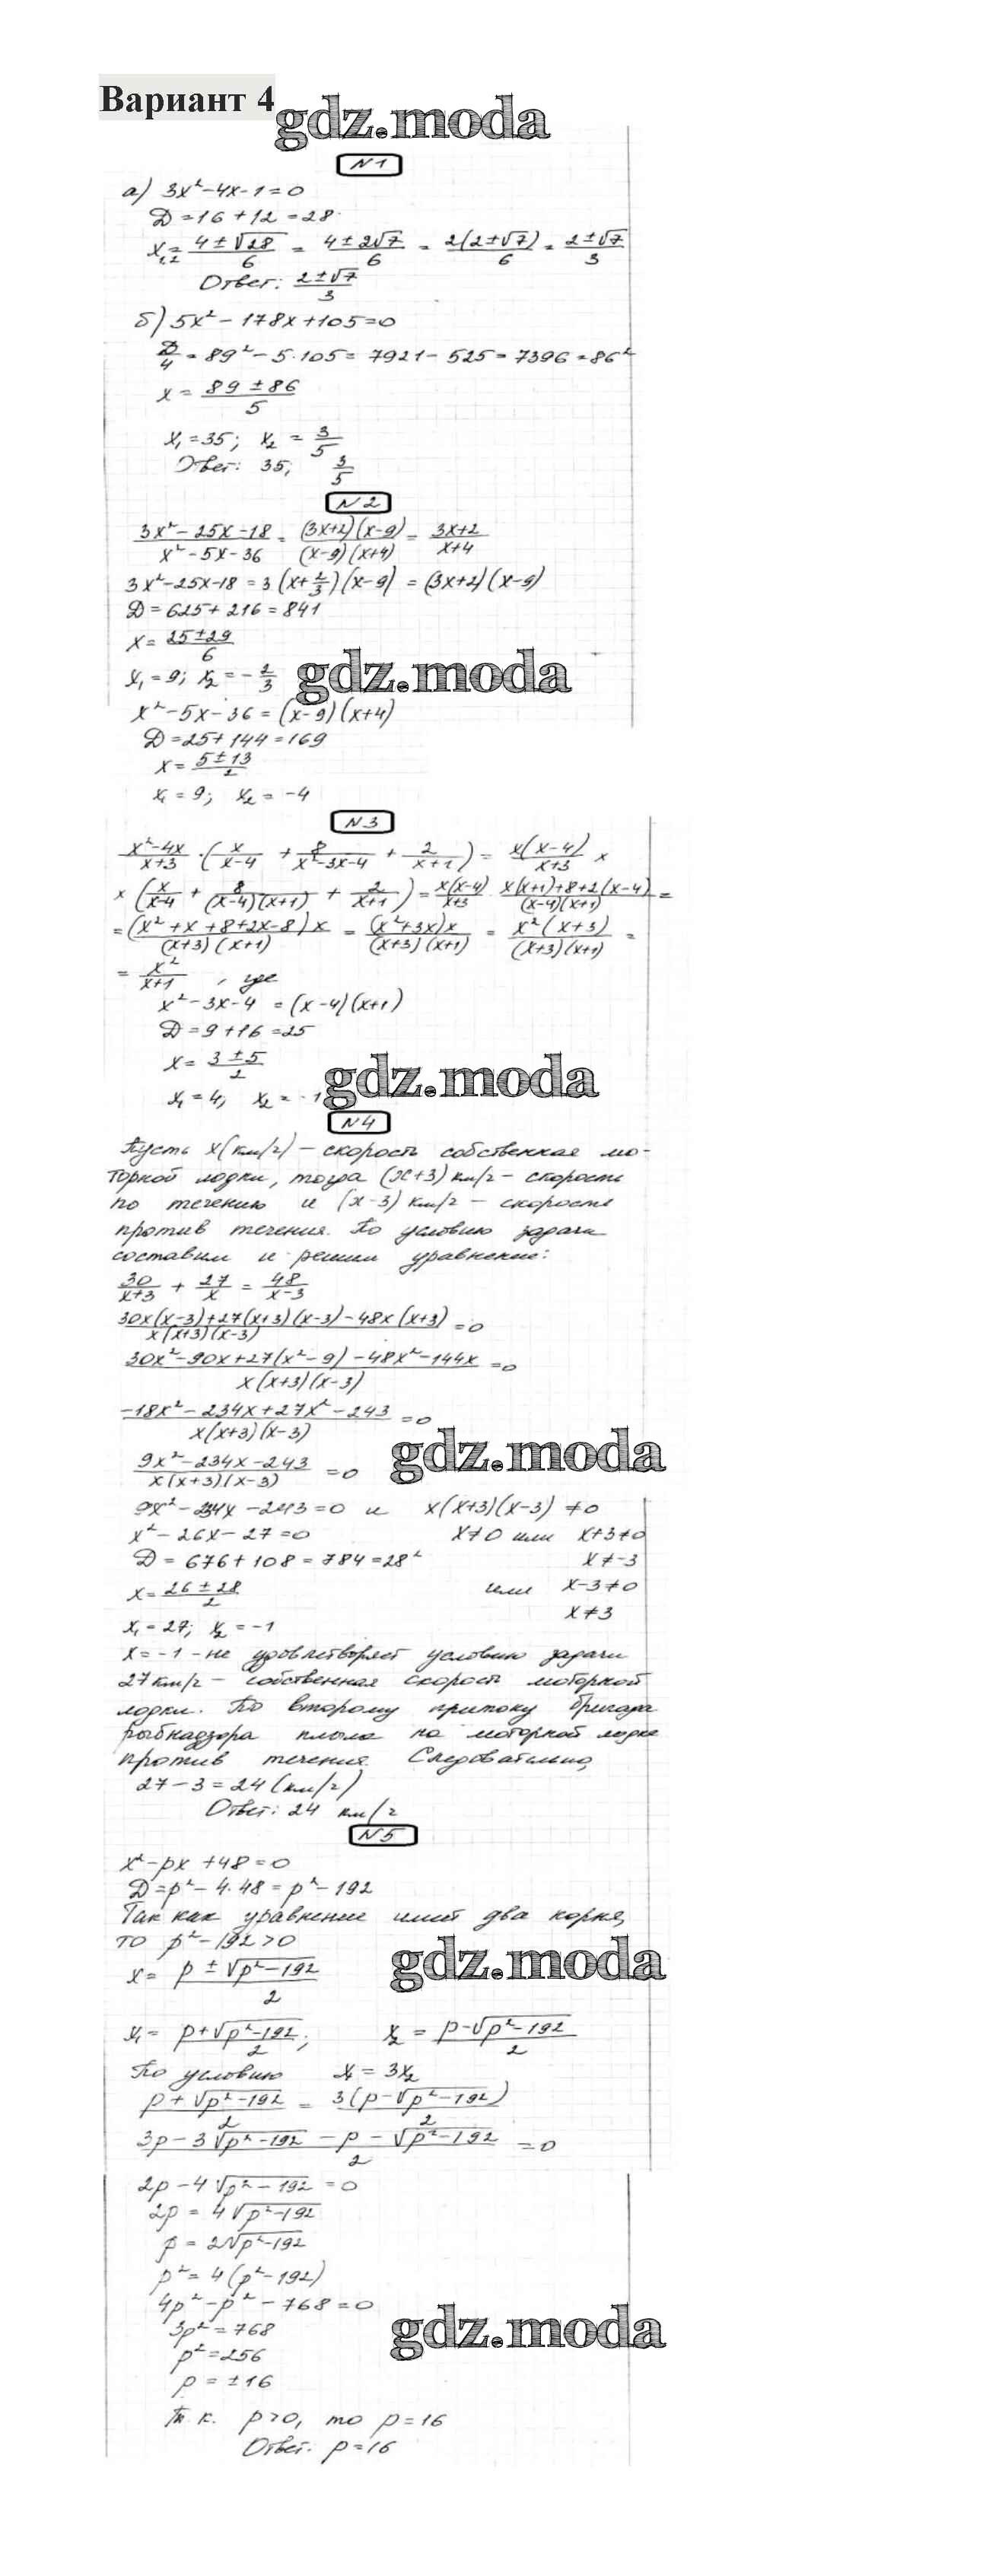 Вариант 4
gdz.moda
N1
а) 3x²-4x-1=0
D=16+12=28
x₁,₂= (4±√28)/6 = (4±2√7)/6 = 2(2±√7)/6 = (2±√7)/3
Ответ: (2±√7)/3
б) 5x²-178x+105=0
D/4 = 89²-5·105= 7921-525=7396=86²
x= (89±86)/5
x₁=35; x₂= 3/5
Ответ: 35; 3/5
N2
(3x²-25x-18)/(x²-5x-36) = (3x+2)(x-9)/(x-9)(x+4) = (3x+2)/(x+4)
3x²-25x-18=3(x+2/3)(x-9) = (3x+2)(x-9)
D=625+216=841
x= (25±29)/6
x₁=9; x₂=-2/3
gdz.moda
x²-5x-36=(x-9)(x+4)
D=25+144=169
x= (5±13)/2
x₁=9; x₂=-4
N3
(x²-4x)/(x+3) · (x/(x-4) + 8/(x²-3x-4) + 2/(x+1)) = x(x-4)/(x+3) ×
× (x/(x-4) + 8/(x-4)(x+1) + 2/(x+1)) = x(x-4)/(x+3) · (x(x+1)+8+2(x-4))/(x-4)(x+1) =
= (x²+x+8+2x-8)x/(x+3)(x+1) = (x²+3x)x/(x+3)(x+1) = x²(x+3)/(x+3)(x+1) =
= x²/(x+1) , где
x²-3x-4 =(x-4)(x+1)
D=9+16=25
x= (3±5)/2
x₁=4; x₂=-1
gdz.moda
N4
Пусть x(км/ч) – скорость собственная мо-
торной лодки, тогда (x+3) км/ч – скорость
по течению и (x-3) км/ч – скорость
против течения. По условию задачи
составим и решим уравнение:
30/(x+3) + 27/x = 48/(x-3)
(30x(x-3)+27(x+3)(x-3)-48x(x+3))/x(x+3)(x-3) =0
(30x²-90x+27(x²-9)-48x²-144x)/x(x+3)(x-3) =0
(-18x²-234x+27x²-243)/x(x+3)(x-3) =0
gdz.moda
(9x²-234x-243)/x(x+3)(x-3) =0
9x²-234x-243=0 и x(x+3)(x-3)≠0
x²-26x-27=0 x≠0 или x+3≠0
D=676+108=784=28² x≠-3
x= (26±28)/2 или x-3≠0
x≠3
x₁=27; x₂=-1
x=-1-не удовлетворяет условию задачи
27км/ч – собственная скорость моторной
лодки. По второму притоку бригада
рыбнадзора плыла на моторной лодке
против течения. Следовательно,
27-3=24(км/ч)
Ответ: 24 км/ч
N5
x²-px+48=0
D=p²-4·48=p²-192
Так как уравнение имеет два корня,
то p²-192>0
gdz.moda
x= (p±√(p²-192))/2
x₁= (p+√(p²-192))/2; x₂= (p-√(p²-192))/2
По условию x₁=3x₂
(p+√(p²-192))/2 = 3(p-√(p²-192))/2
(3p-3√(p²-192)-p-√(p²-192))/2 =0
2p-4√(p²-192)=0
2p=4√(p²-192)
p=2√(p²-192)
p²=4(p²-192)
4p²-p²-768=0
gdz.moda
3p²=768
p²=256
p=±16
т.к. p>0, то p=16
Ответ: p=16